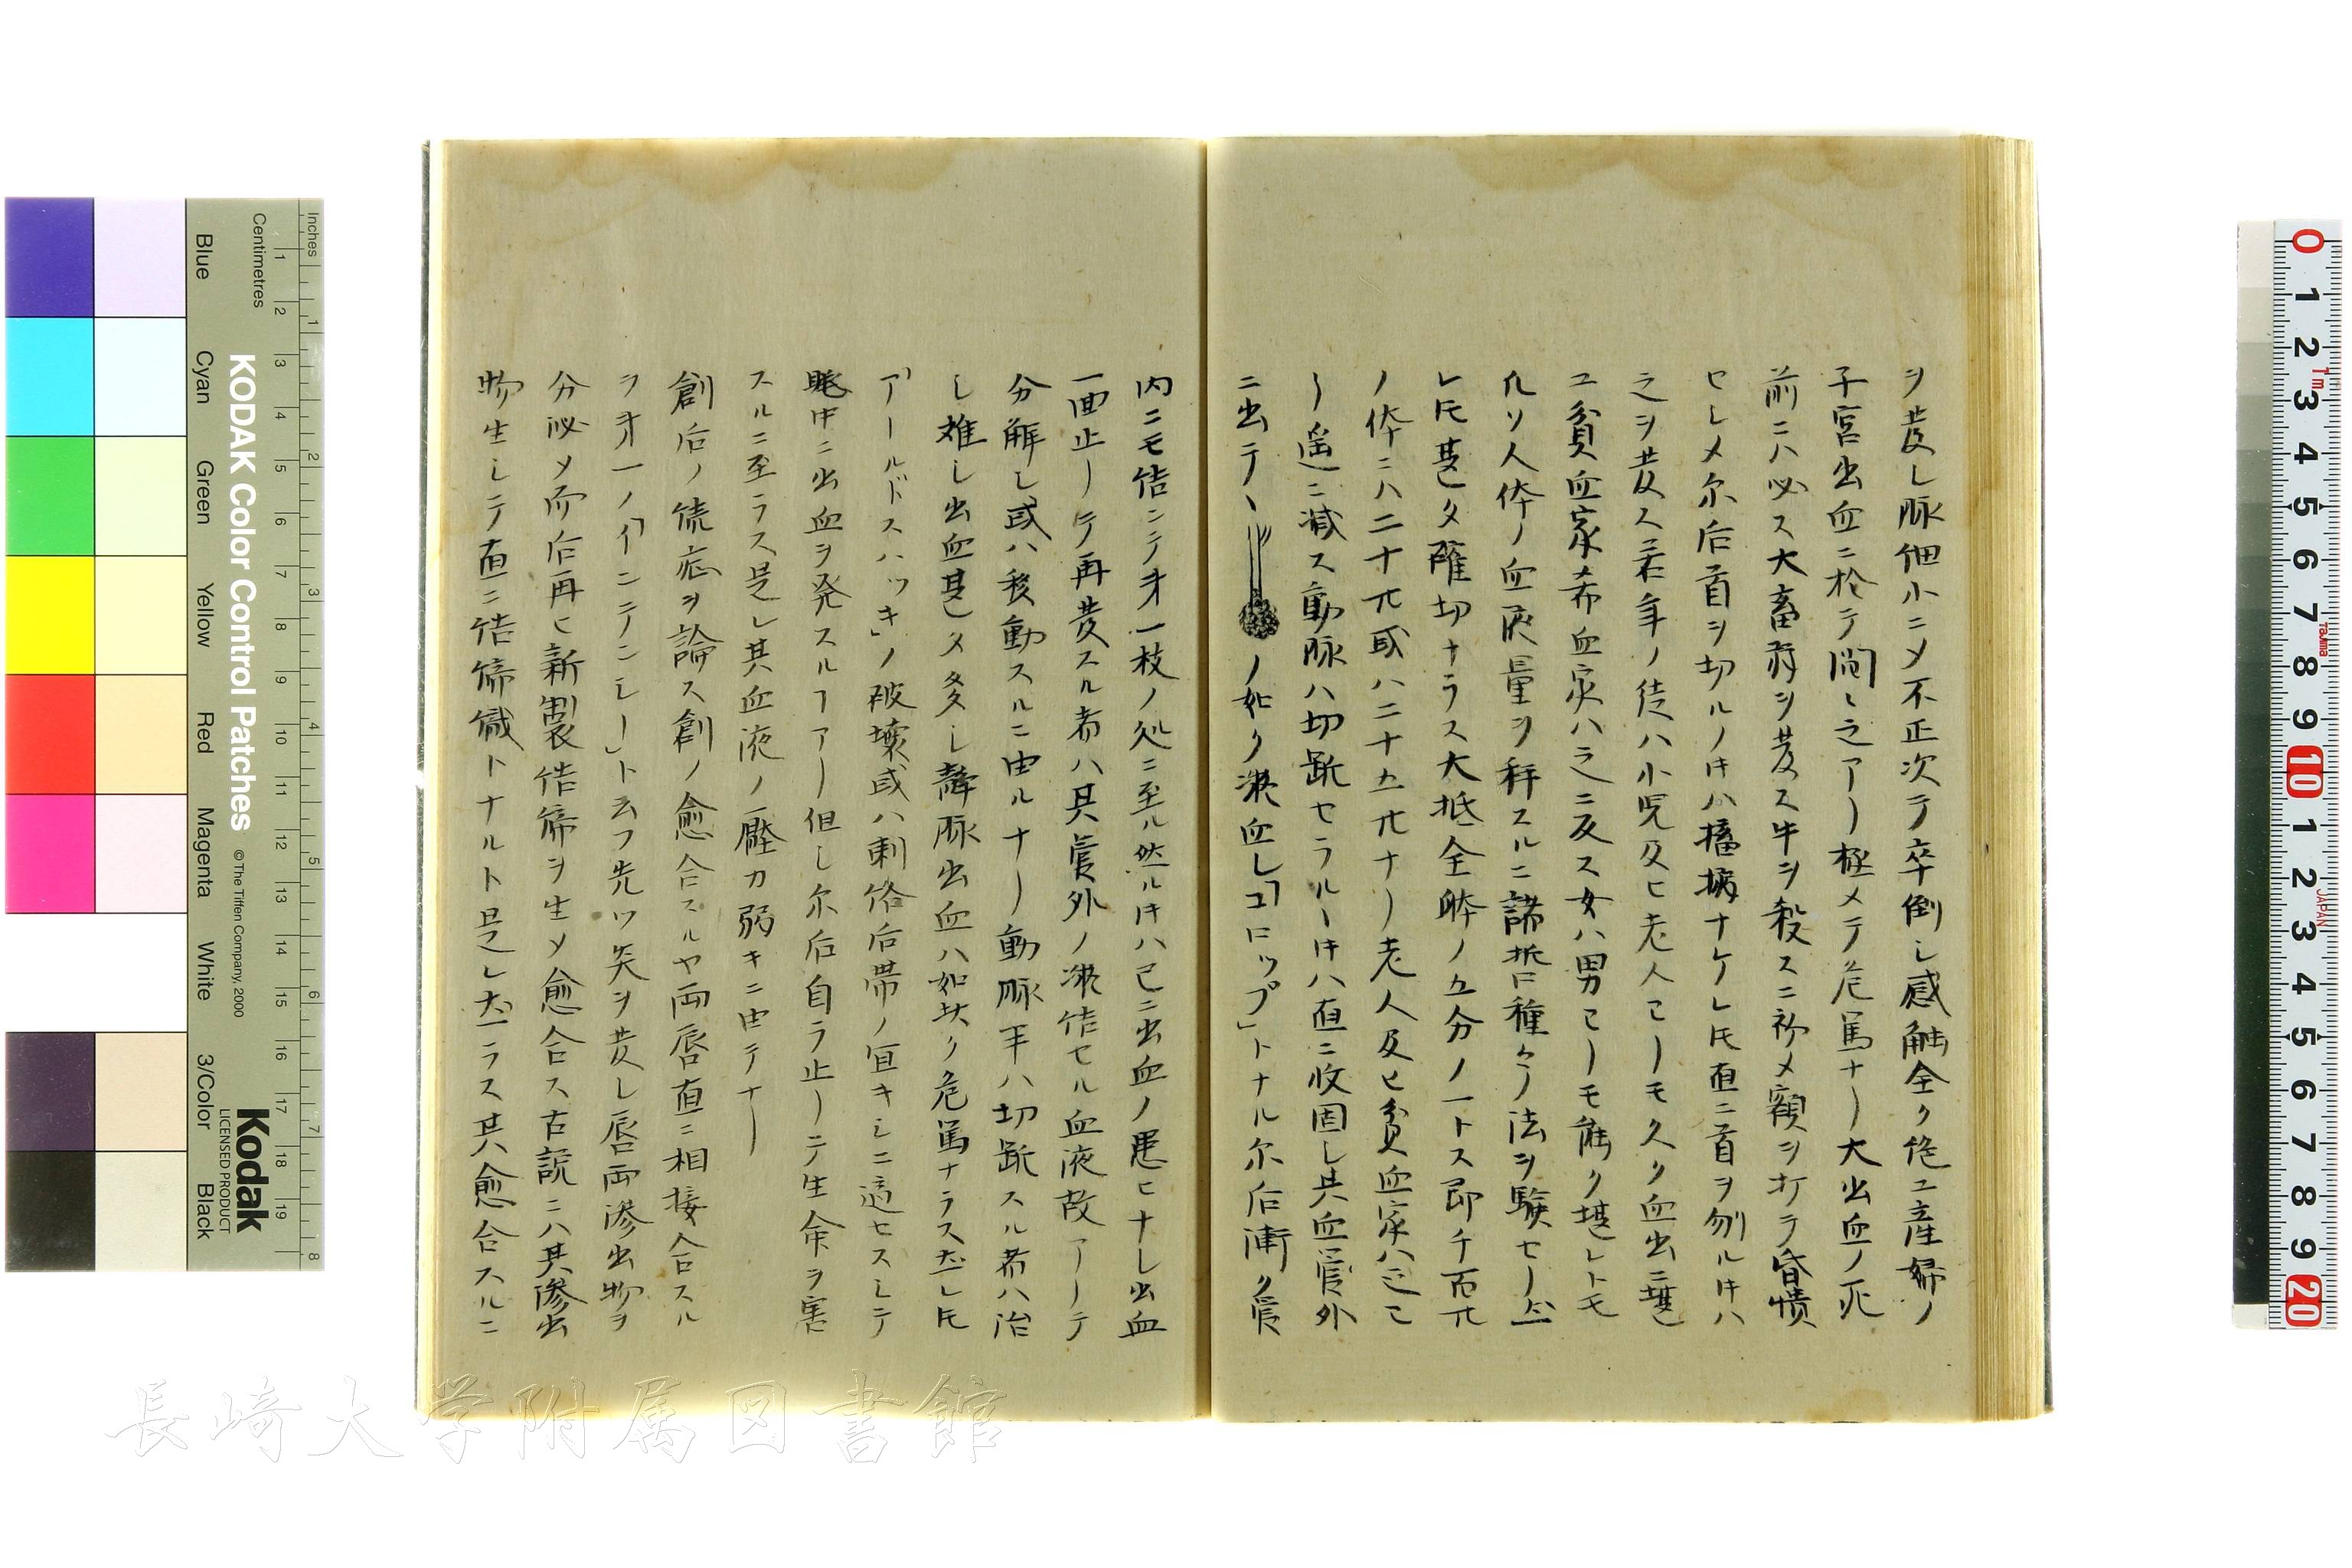 ヲ発シ脈細小ニメ不正次テ卒倒シ感触全ク絶ユ産婦ノ
子宮出血ニ於テ間々之アリ極メテ危篤ナリ大出血ノ死
前ニハ必ス大畜搦ヲ発ス牛ヲ殺スニ初メ額ヲ打テ昏憒
セシメ尓后首ヲ切ルノ𬼀ハ搐搦ナケレ𪜈直ニ首ヲ刎ル𬼀ハ
之ヲ発ス若年ノ徒ハ小児及ヒ老人ヨリモ久ク血出ニ堪
ユ貧血家希血家ハ之ニ反ス女ハ男ヨリモ能ク堪レトモ
凡ソ人体ノ血液量ヲ秤スルニ諸哲種々ノ法ヲ験セリ
レ𪜈甚タ確切ナラス大抵全体ノ五分ノ一トス即千百
ノ体ニハ二十 或ハ二十五 ナリ老人及ヒ貧血家ハ之ヨ
リ遥ニ減ス動脈ハ切断セラルヽ𬼀ハ直ニ收固シ其血管外
ニ出テヽ ノ如ク凝血シ「コロップ」トナル尓后漸ク管
内ニモ結シテ才一枝ノ処ニ至ル然ル𬼀ハ已ニ出血ノ患ヒナシ出血
一回止リテ再発スル者ハ其管外ノ凝結セル血液故アリテ
分解シ或ハ移動スルニ由ルナリ動脈半ハ切断スル者ハ治
シ難シ出血甚タ多シ静脈出血ハ如
此ク危篤ナラス然レ𪜈
「アールドスハッキ」ノ破壊或ハ刺絡后帯ノ宜キニ適セスシテ
眠中ニ出血ヲ発スルヿアリ但シ尓后自ラ止リテ生命ヲ害
スルニ至ラス是レ其血液ノ壓力弱キニ由テナリ
創后ノ続症ヲ論ス創ノ愈合スルヤ両唇直ニ相接合スル
ヲ才一ノ「インテンシー」ト云フ先ツ炎ヲ発シ唇両滲出物ヲ
分泌メ而后再ヒ新製結締ヲ生メ愈合ス古説ニハ其滲出
物生シテ直ニ結締織トナルト是レ然ラス其愈合スルニ
KODAK Color Control Patches
©The Tiffen Company, 2000
Kodak
LICENSED PRODUCT
Inches
Centimetres
Blue
Cyan
Green
Yellow
Red
Magenta
White
3/Color
Black
長崎大学附属図書館